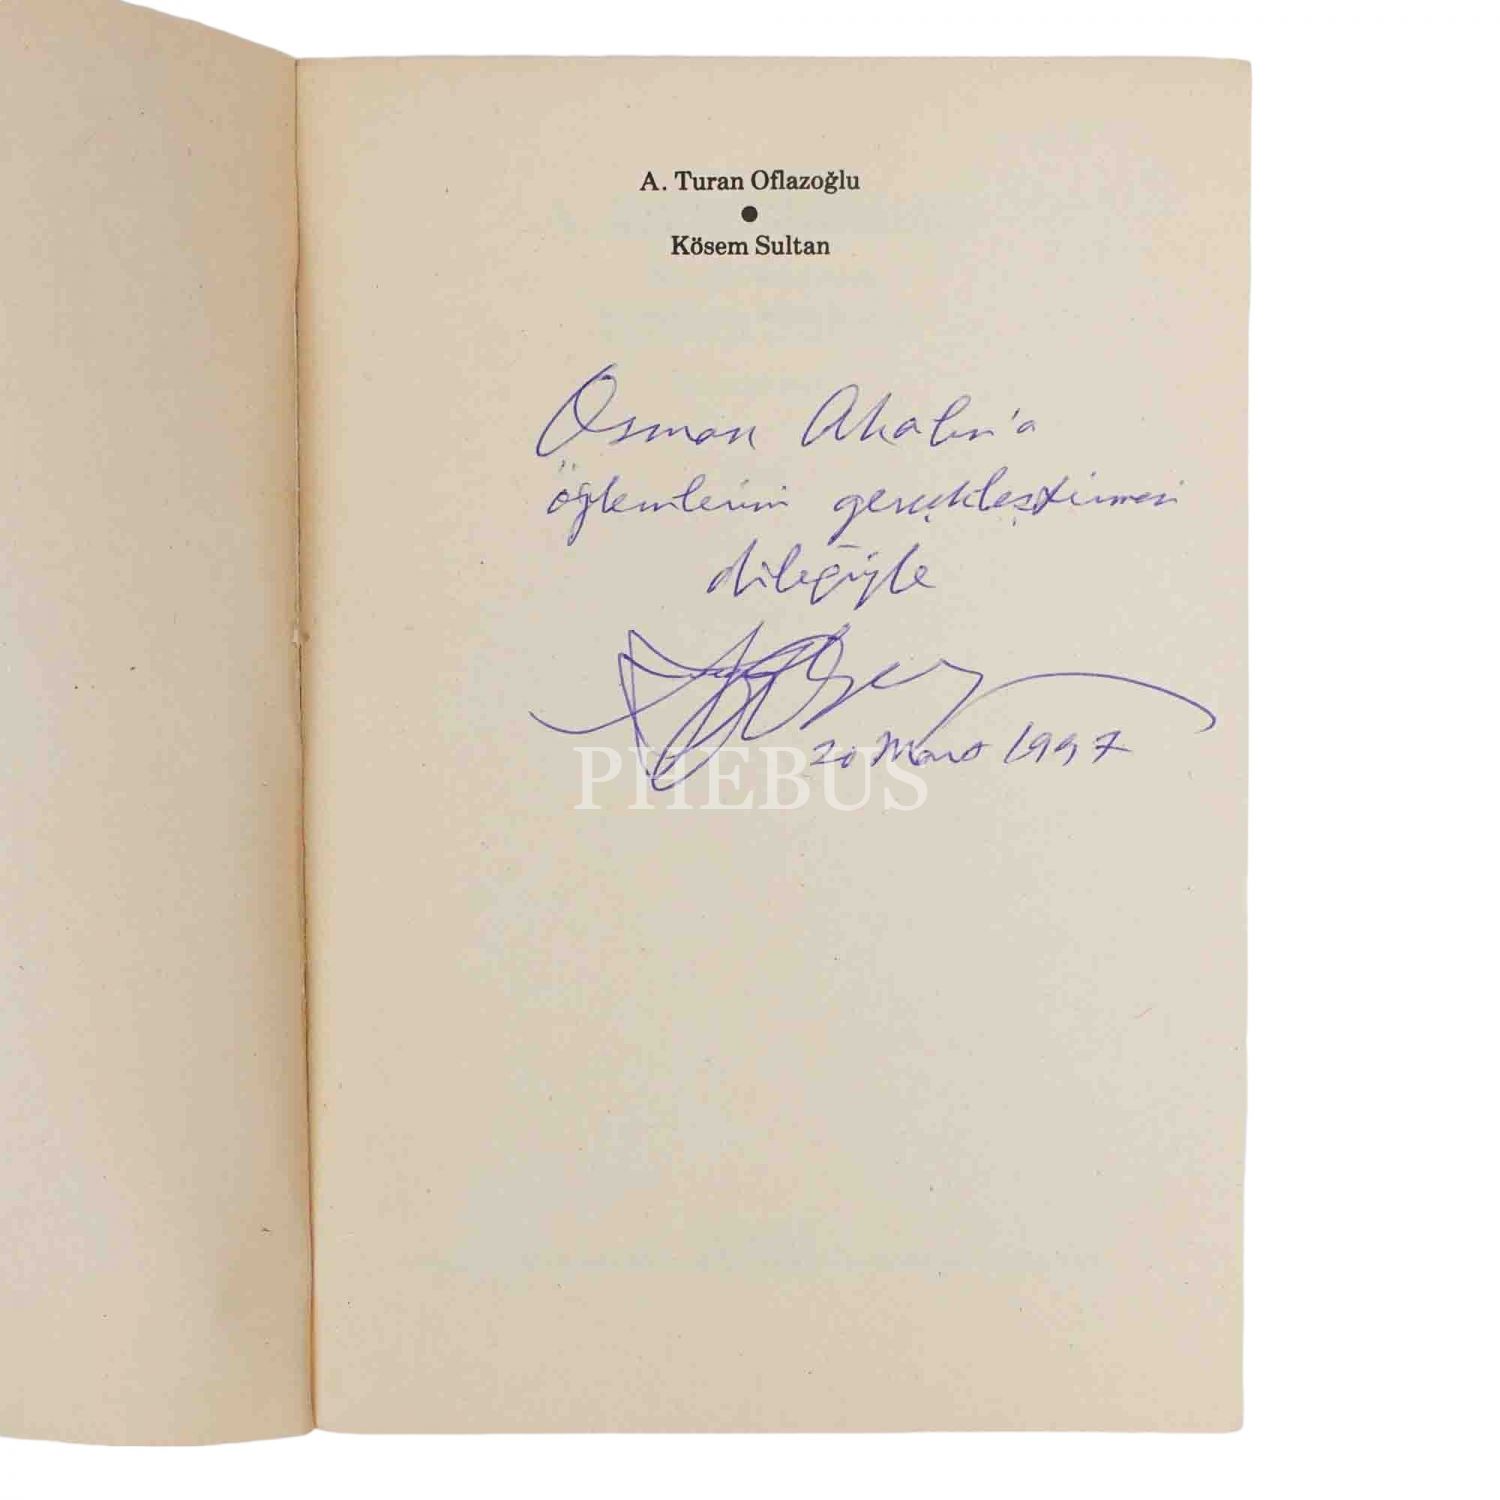 A. Turan Oflazoğlu
Kösem Sultan
Osman Akalın'a
özlemlerini gerçekleştirmesi
dileğiyle
20 Mart 1997
PHEBUS